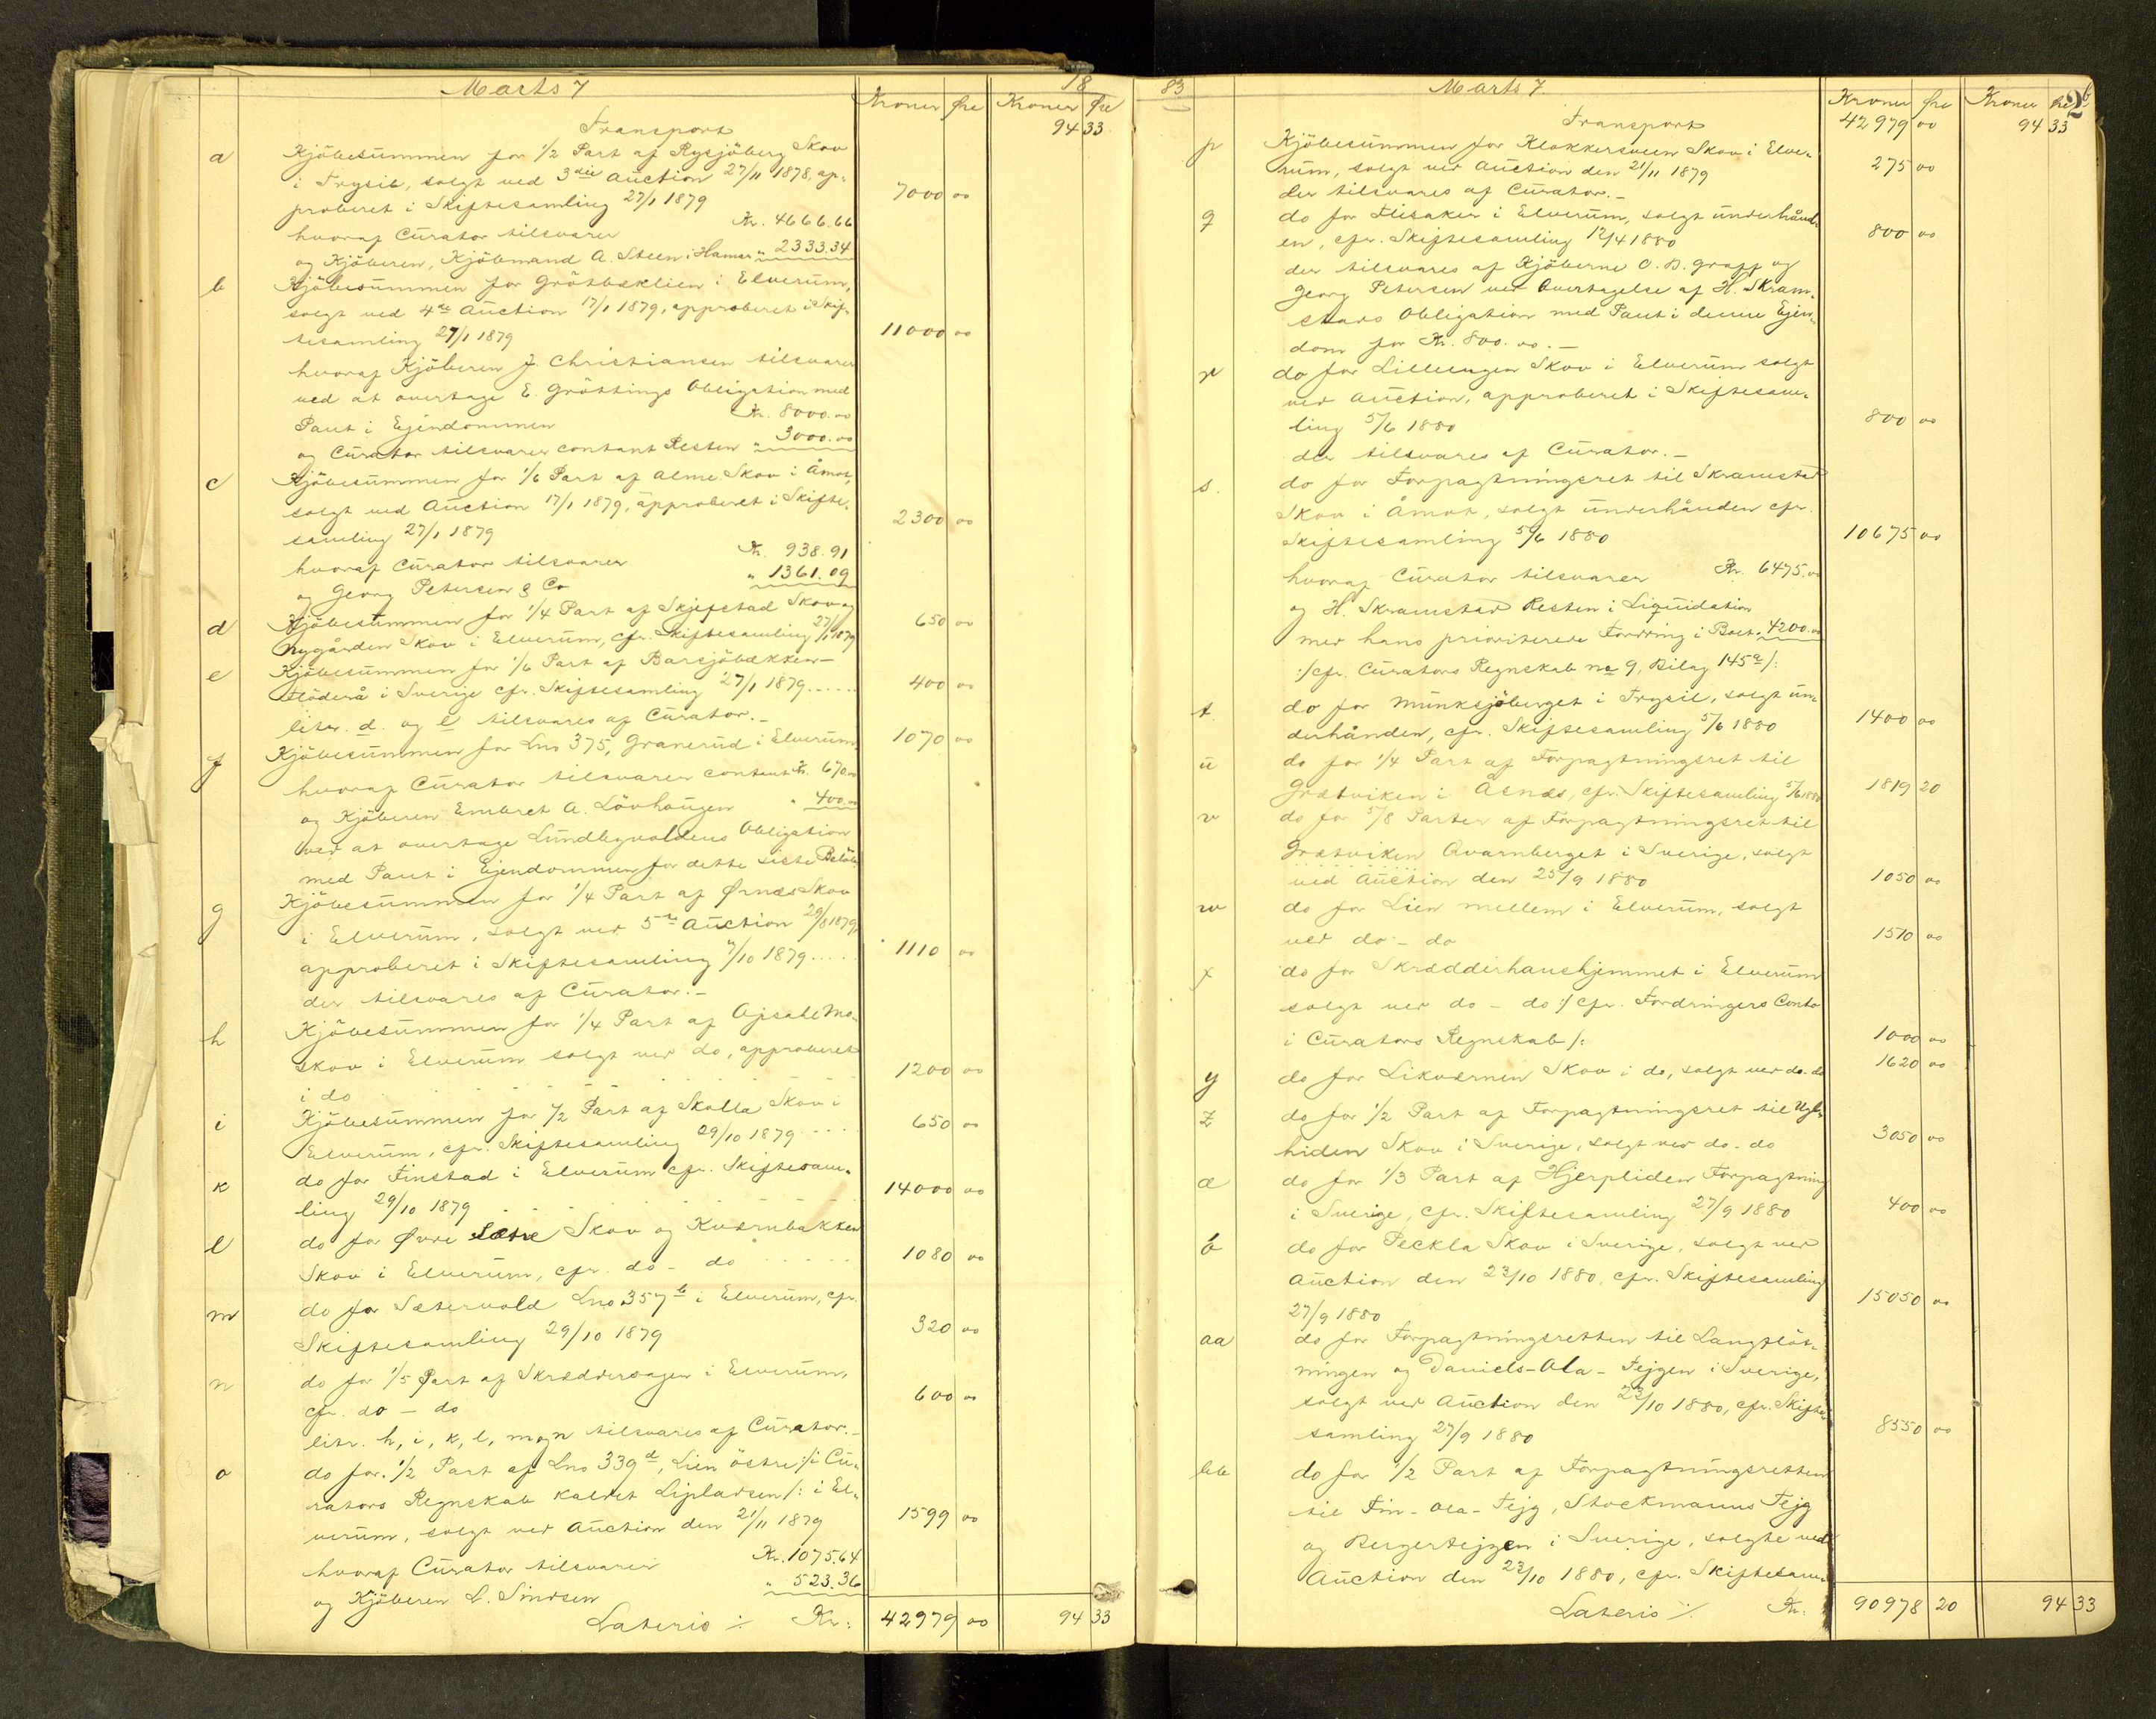 Marts 7 18
Kroner øre Kroner øre
Transport 94 33
a Kjöbesummen for 1/2 Part af Rysjöberg Skov
i Trysil, solgt ved 3die Auction 27/11 1878, ap-
proberet i Skiftesamling 27/1 1879 7000 00
hvoraf Curator tilsvarer Kr. 4666.66
og Kjöberen, Kjöbmand A. Steen i Hamar " 2333.34
b Kjöbesummen for Grötbæklien i Elverum,
solgt ved 4de Auction 17/1 1879, approberet i Skif-
tesamling 27/1 1879 11000 00
hvoraf Kjöberen J. Christiansen tilsvarer
ved at overtage E. Gröttings Obligation med
Pant i Ejendommen Kr. 8000.00
og Curator tilsvarer contant Resten " 3000.00
c Kjöbesummen for 1/6 Part af Alme Skov i Åmot,
solgt ved Auction 17/1 1879, approberet i Skifte-
samling 27/1 1879 2300 00
hvoraf Curator tilsvarer Kr. 938.91
og Georg Petersen & Co " 1361.09
d Kjöbesummen for 1/4 Part af Skjefstad Skov og
Nygården Skov i Elverum, cfr. Skiftesamling 27/1 1879 650 00
e Kjöbesummen for 1/6 Part af Barsjöbækken-
Flöderå i Sverige cfr. Skiftesamling 27/1 1879 ..... 400 00
litr. d. og e tilsvares af Curator.-
f Kjöbesummen for Lno 375, Granerud i Elverum, 1070 00
hvoraf Curator tilsvarer contant Kr. 670.00
og Kjöberen Embret A. Lövhaugen " 400.00
ved at overtage Lundbyvoldens Obligation
med Pant i Ejendommen for dette siste Belöb
g Kjöbesummen for 1/4 Part af Ørnæs Skov
i Elverum, solgt ved 5te Auction 29/8 1879,
approberet i Skiftesamling 7/10 1879 ..... 1110 00
der tilsvares af Curator.-
h Kjöbesummen for 1/4 Part af Mo-
skov i Elverum solgt ved do, approberet
i do 1200 00
i Kjöbesummen for 1/2 Part af Skolla Skov i
Elverum, cfr. Skiftesamling 29/10 1879 .... 650 00
k do for Finstad i Elverum cfr. Skiftesam-
ling 29/10 1879 14000 00
l do for Øvre Sætre Skov og Kværnbakken
Skov i Elverum, cfr. do - do ..... 1080 00
m do for Sætervold Lno 357 b i Elverum, cfr.
Skiftesamling 29/10 1879 320 00
n do for 1/5 Part af Skræddersagen i Elverum,
cfr. do - do 600 00
litr. h, i, k, l, m og n tilsvares af Curator.-
o do for 1/2 Part af Lno 339 d, Lien östre :/i Cu-
rators Regnskab kaldet Lipladsen/: i El-
verum, solgt ved Auction den 21/11 1879 1599 00
hvoraf Curator tilsvarer Kr. 1075.64
og Kjöberen L. Simensen " 523.36
Lateris ./. Kr: 42979 00 94 33
83 Marts 7. 2
Kroner øre Kroner øre
Transport 42979 00 94 33
p Kjöbesummen for Klokkersveen Skov i Elve-
rum, solgt ved Auction den 21/11 1879 275 00
der tilsvares af Curator.-
q do for Flisaker i Elverum, solgt underhånd-
en, cfr. Skiftesamling 12/4 1880 800 00
der tilsvares af Kjöberne O. B. Graff og
Georg Petersen ved Overtagelse af H. Skram-
stads Obligation med Pant i denne Ejen-
dom for Kr. 800.00.-
r do for Lillesugen Skov i Elverum solgt
ved Auction, approberet i Skiftesam-
ling 5/6 1880 800 00
der tilsvares af Curator.-
s. do for Forpagtningsret til Skramstad
Skov i Åmot, solgt underhånden cfr.
Skiftesamling 5/6 1880 10675 00
hvoraf Curator tilsvarer Kr. 6475.00
og H. Skramstad Resten i Liquidation
med hans prioriterede Fordring i Boet " 4200.00
:/cfr. Curators Regnskab No 9, Bilag 145 a/:
t. do for Munksjöberget i Trysil, solgt un-
derhånden, cfr. Skiftesamling 5/6 1880 1400 00
u do for 1/4 Part af Forpagtningsret til
Grætviken i Åsnæs, cfr. Skiftesamling 5/6 1880 1819 20
v do for 5/8 Parter af Forpagtningsret til
Grætviken Qvarnberget i Sverige, solgt
ved Auction den 25/9 1880 1050 00
w do for Lien mellem i Elverum, solgt
ved do - do 1510 00
x do for Skrædderhanshjemmet i Elverum
solgt ved do - do :/ cfr. Fordringers Conto
i Curators Regnskab/: 1000 00
y do for Likværnen Skov i do, solgt ved do-do 1620 00
z do for 1/2 Part af Forpagtningsret til
hiden Skov i Sverige, solgt ved do - do 3050 00
æ do for 1/3 Part af Hjerpliden Forpagtning
i Sverige, cfr. Skiftesamling 27/9 1880 400 00
ö do for Peckla Skov i Sverige, solgt ved
Auction den 23/10 1880, cfr. Skiftesamling
27/9 1880 15050 00
aa do for Forpagtningsretten til Langflöt-
ningen og Daniels-Ola-Tejgen i Sverige,
solgt ved Auction den 23/10 1880, cfr. Skifte-
samling 27/9 1880 8550 00
bb do for 1/2 Part af Forpagtningsretten
til Fin-Ola-Tejg, Stockmanns Tejg
og Bergertejgen i Sverige, solgte ved
Auction den 23/10 1880, cfr. Skiftesam-
Lateris ./. Kr: 90978 20 94 33